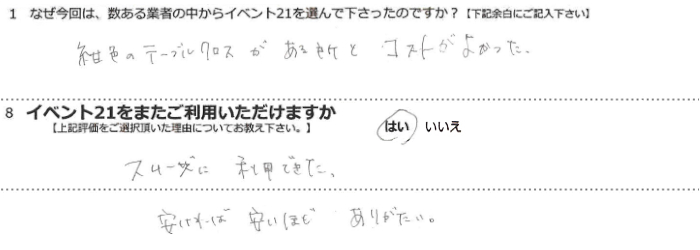 1 なぜ今回は、数ある業者の中からイベント21を選んで下さったのですか？【下記余白にご記入下さい】
紺色のテーブルクロスがある所とコストがよかった。
8 イベント21をまたご利用いただけますか
【上記評価をご選択頂いた理由についてお教え下さい。】
はい いいえ
スムーズに利用できた、
安ければ安いほどありがたい。